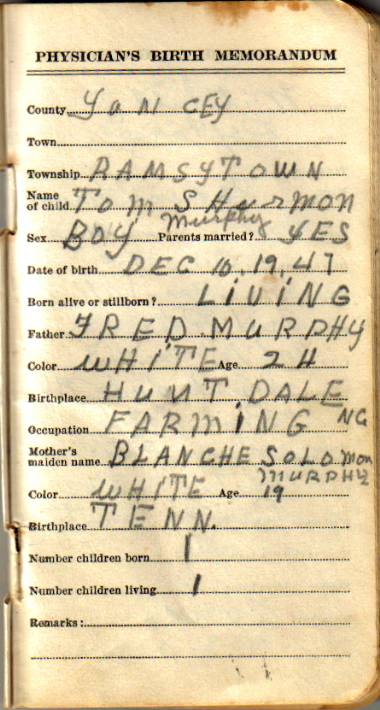 PHYSICIAN'S BIRTH MEMORANDUM
County YANCEY
Town
Township RAMSYTOWN
Name of child TOM SHURMON
Murphy
Sex BOY Parents married? YES
Date of birth DEC 10, 19, 47
Born alive or stillborn? LIVING
Father FRED MURPHY
Color WHITE Age 24
Birthplace HUNT, DALE
Occupation FARMING NC
Mother's maiden name BLANCHE SOLOMON
MURPHY
Color WHITE Age 19
Birthplace TENN.
Number children born 1
Number children living 1
Remarks: